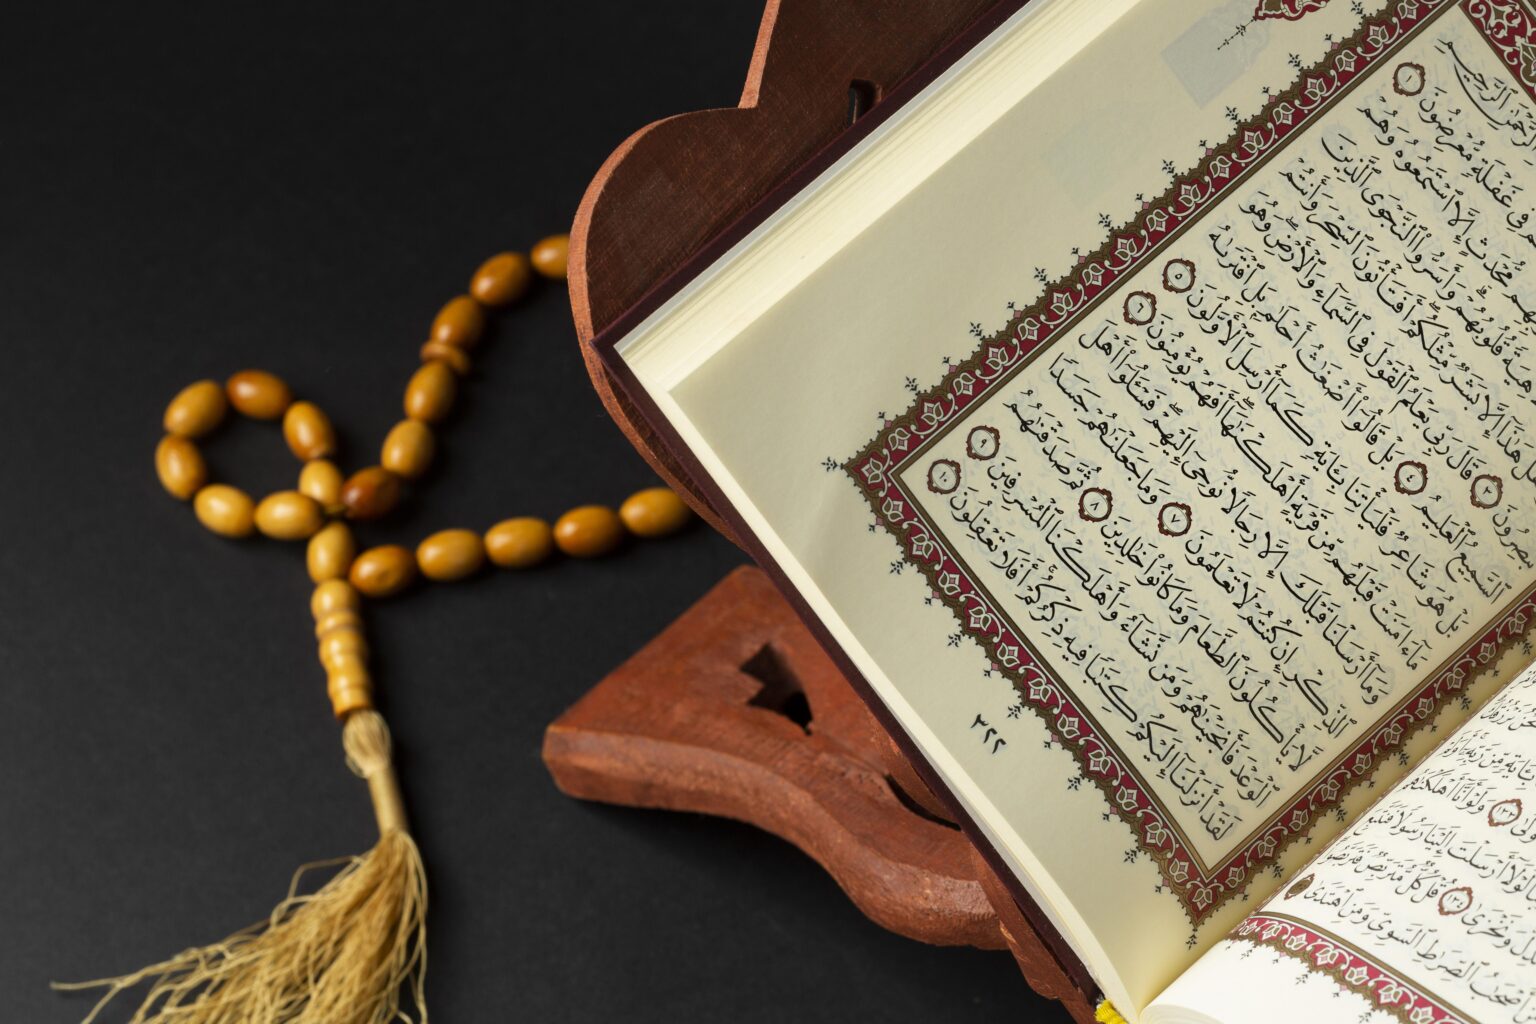 بِـَٔايَةٍ مِّن رَّبِّهِۦٓ
ٱلْأُولَىٰ ١٣٣ وَلَوْ أَنَّآ أَهْلَكْنَٰهُم
لَوْلَآ أَرْسَلْتَ إِلَيْنَا رَسُولًا فَنَتَّبِعَ
وَنَخْزَىٰ ١٣٤ قُلْ كُلٌّ مُّتَرَبِّصٌ فَتَرَبَّصُوا۟
أَصْحَٰبُ ٱلصِّرَٰطِ ٱلسَّوِىِّ وَمَنِ ٱهْتَدَىٰ
ٱلرَّحْمَٰنِ ٱلرَّحِيمِ
فِى غَفْلَةٍ مُّعْرِضُونَ ١
مُّحْدَثٍ إِلَّا ٱسْتَمَعُوهُ وَهُمْ
لَاهِيَةً قُلُوبُهُمْ وَأَسَرُّوا۟ ٱلنَّجْوَى ٱلَّذِينَ
هَلْ هَٰذَآ إِلَّا بَشَرٌ مِّثْلُكُمْ أَفَتَأْتُونَ ٱلسِّحْرَ وَأَنتُمْ
تُبْصِرُونَ ٣ قَالَ رَبِّى يَعْلَمُ ٱلْقَوْلَ فِى ٱلسَّمَآءِ وَٱلْأَرْضِ وَهُوَ
ٱلسَّمِيعُ ٱلْعَلِيمُ ٤ بَلْ قَالُوٓا۟ أَضْغَٰثُ أَحْلَٰمٍۭ بَلِ ٱفْتَرَىٰهُ
بَلْ هُوَ شَاعِرٌ فَلْيَأْتِنَا بِـَٔايَةٍ كَمَآ أُرْسِلَ ٱلْأَوَّلُونَ ٥
مَآ ءَامَنَتْ قَبْلَهُم مِّن قَرْيَةٍ أَهْلَكْنَٰهَآ أَفَهُمْ يُؤْمِنُونَ ٦
وَمَآ أَرْسَلْنَا قَبْلَكَ إِلَّا رِجَالًا نُّوحِىٓ إِلَيْهِمْ فَسْـَٔلُوٓا۟ أَهْلَ
ٱلذِّكْرِ إِن كُنتُمْ لَا تَعْلَمُونَ ٧ وَمَا جَعَلْنَٰهُمْ جَسَدًا
لَّا يَأْكُلُونَ ٱلطَّعَامَ وَمَا كَانُوا۟ خَٰلِدِينَ ٨ ثُمَّ صَدَقْنَٰهُمُ
ٱلْوَعْدَ فَأَنجَيْنَٰهُمْ وَمَن نَّشَآءُ وَأَهْلَكْنَا ٱلْمُسْرِفِينَ ٩
لَقَدْ أَنزَلْنَآ إِلَيْكُمْ كِتَٰبًا فِيهِ ذِكْرُكُمْ أَفَلَا تَعْقِلُونَ ١٠
٣٢٢